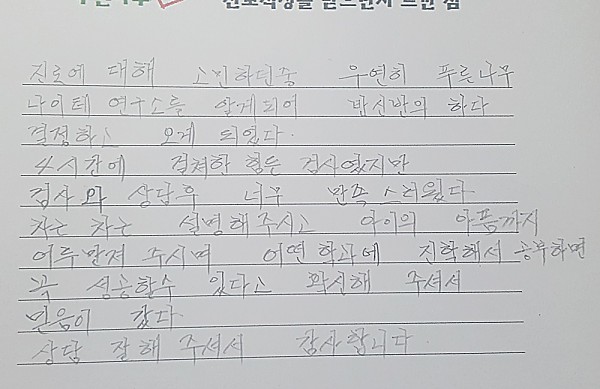 진로적성을 받으면서 느낀 점
진로에 대해 고민하던중 우연히 푸른나무
나이테 연구소를 알게되어 반신반의 하다
결정하고 오게 되었다.
4시간에 걸쳐한 힘든 검사였지만
검사와 상담후 너무 만족스러웠다.
차근 차근 설명해주시고 아이의 아픔까지
어루만져 주시며 어떤 학과에 진학해서 공부하면
꼭 성공할수 있다고 확신해 주셔서
믿음이 갔다.
상담 잘해 주셔서 감사합니다.